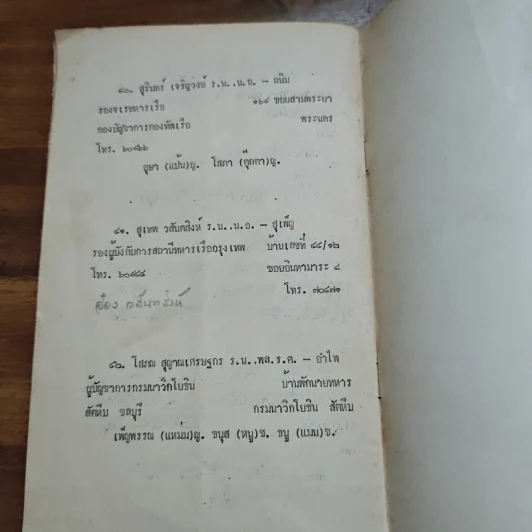 ๔๐. สุรินทร์ เจริญวงษ์ ร.น.,น.อ. – ถนิม
รองจเรทหารเรือ ๑๖๙ ซอยสามพระยา
กองบัญชาการกองทัพเรือ พระนคร
โทร. ๖๐๙๖๖
อุษา (แป้น)ญ. โสภา (ตุ๊กตา)ญ.
๔๑. สุเทพ วสันตสิงห์ ร.น.,น.อ. – สุเพ็ญ
รองผู้บังคับการสถานีทหารเรือกรุงเทพ บ้านเลขที่ ๔๔/๑๒
โทร. ๖๐๙๔๔ ซอยอินทามาระ ๘
โทร. ๗๐๔๗๑
วสันตสิงห์
๔๒. โสภณ สุญาณเศรษฐกร ร.น.,พล.ร.ต. – อำไพ
ผู้บัญชาการกรมนาวิกโยธิน บ้านพักนายทหาร
สัตหีบ ชลบุรี กรมนาวิกโยธิน สัตหีบ
เพ็ญพรรณ (แหม่ม)ญ. ชนุส (หนู)ช. ชนู (แมน)ช.